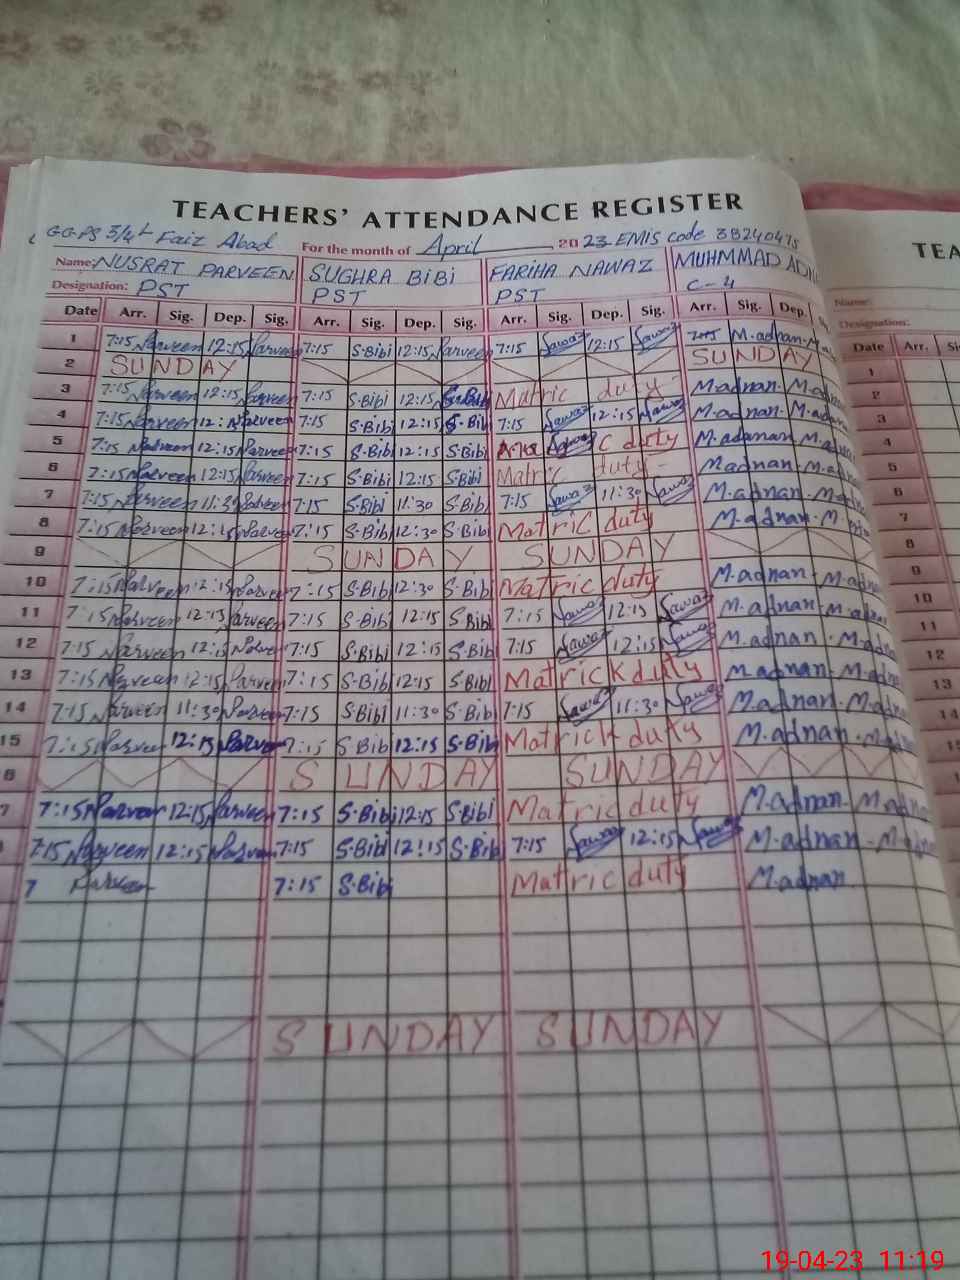 TEACHERS' ATTENDANCE REGISTER
GGPS 3/4L Faiz Abad For the month of April 2023 EMIS code 38240475
Name: NUSRAT PARVEEN SUGHRA BIBI FARIHA NAWAZ MUHMMAD ADN
Designation: PST PST PST C-4
Date Arr. Sig. Dep. Sig. Arr. Sig. Dep. Sig. Arr. Sig. Dep. Sig. Arr. Sig. Dep.
1 7:15 Parveen 12:15 Parveen 7:15 S.Bibi 12:15 Parveen 7:15 Nawaz 12:15 Nawaz M.adnan
2 SUNDAY SUNDAY
3 7:15 Parveen 12:15 Parveen 7:15 S.Bibi 12:15 S.Bibi Matric duty M.adnan M.adnan
4 7:15 Parveen 12:1 Parveen 7:15 S.Bibi 12:15 S.Bibi 7:15 Nawaz 12:15 Nawaz M.adnan M.adnan
5 7:15 Parveen 12:15 Parveen 7:15 S.Bibi 12:15 S.Bibi c duty M.adanan M.adnan
6 7:15 Parveen 12:15 Parveen 7:15 S.Bibi 12:15 S.Bibi Matric duty Madnan M.adnan
7 7:15 Parveen 11:30 Parveen 7:15 S.Bibi 11:30 S.Bibi 7:15 Nawaz 11:30 Nawaz M.adnan M.adnan
8 7:15 Parveen 12:15 Parveen 7:15 S.Bibi 12:30 S.Bibi Matric duty M.adnan M.
9 SUNDAY SUNDAY
10 7:15 Parveen 12:15 Parveen 7:15 S.Bibi 12:30 S.Bibi Matric duty M.adnan M.adnan
11 7:15 Parveen 12:15 Parveen 7:15 S.Bibi 12:15 S.Bibi 7:15 Nawaz 12:15 Nawaz M.adnan M.adnan
12 7:15 Parveen 12:15 Parveen 7:15 S.Bibi 12:15 S.Bibi 7:15 Nawaz 12:15 Nawaz M.adnan M.adnan
13 7:15 Parveen 12:15 Parveen 7:15 S.Bibi 12:15 S.Bibi Matrick duty M.adnan M.adnan
14 7:15 Parveen 11:30 Parveen 7:15 S.Bibi 11:30 S.Bibi 7:15 Nawaz 11:30 Nawaz M.adnan M.adnan
15 7:15 Parveen 12:15 Parveen 7:15 S.Bibi 12:15 S.Bibi Matrick duty M.adnan M.adnan
6 SUNDAY SUNDAY
7 7:15 Parveen 12:15 Parveen 7:15 S.Bibi 12:15 S.Bibi Matric duty M.adnan M.adnan
7:15 Parveen 12:15 Parveen 7:15 S.Bibi 12:15 S.Bibi 7:15 Nawaz 12:15 Nawaz M.adnan M.adnan
7 Parveen 7:15 S.Bibi Matric duty M.adnan
SUNDAY SUNDAY
TEA
Name:
Designation:
Date Arr. Si
1
2
3
4
5
6
7
8
9
10
11
12
13
14
19-04-23 11:19